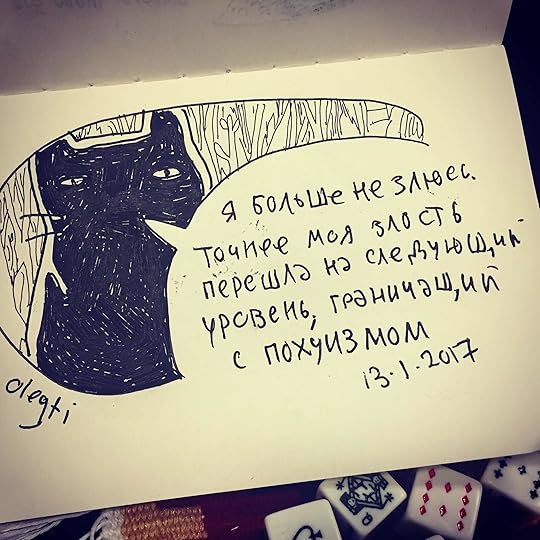 Я больше не злюсь.
Точнее моя злость
перешла на следующий
уровень, граничащий
с похуизмом
13.1.2017
olegti